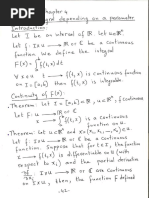 Chapter 4
Integral depending on a parameter
Introduction:
Let I be an interval of ℝ, let u ⊂ ℝⁿ
let f : I×u → ℝ or ℂ be a continuous
function. We define the integral
F(x) = ∫ f(t,x) dt
∀ x ∈ u t → f(t,x) is continuous function
on I, then that is integrable.
Continuity of F(x).
Theorem: Let u ⊂ ℝⁿ, I = [a,b] ⊂ ℝ
and f : I×u → ℝ or ℂ is a continuous
function, then F is continuous on u.
Theorem: Let u ⊂ ℝⁿ
let f : I×u → ℝ or ℂ be a continuous
function. Suppose that for t ∈ I, the
function f(t,x) is differentiable on u (with
respect to x) and the partial derivative
∂f/∂x : I×u → ℝ or ℂ are continuous
on I×u, then, the function F defined